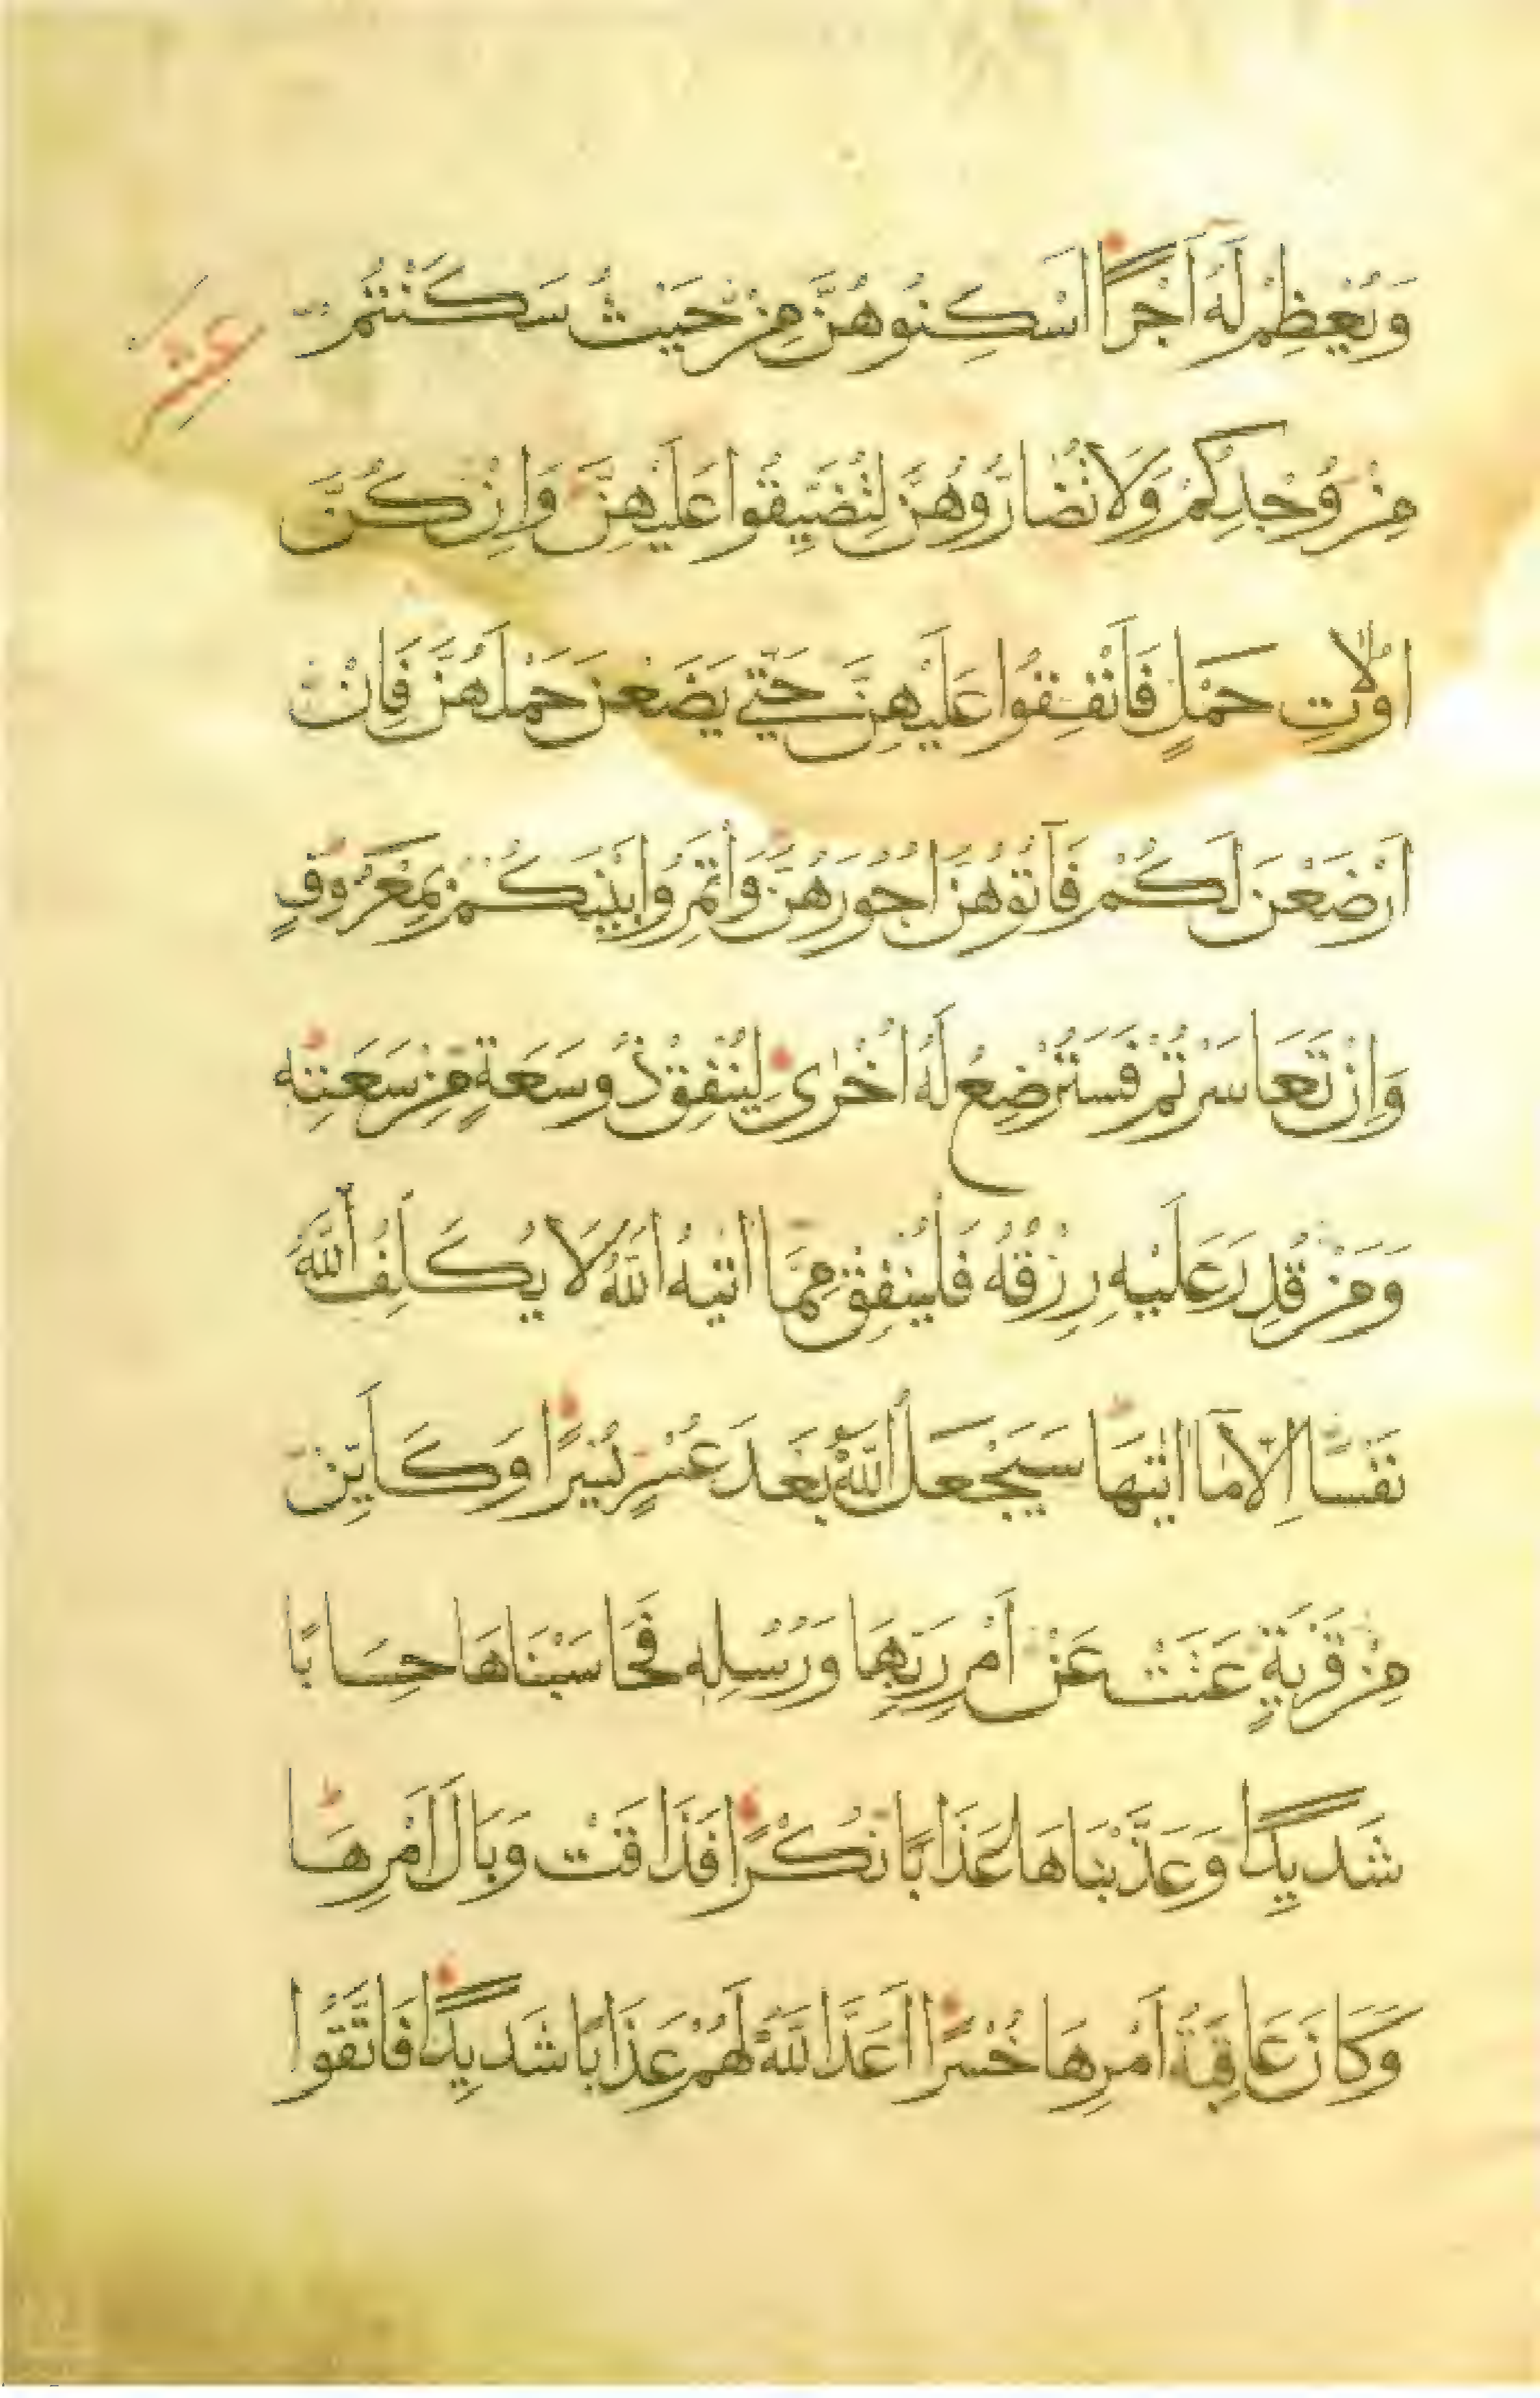 وَيُعْظِمْ لَهُ اَجْرًا اَسْكِنُوهُنَّ مِنْ حَيْثُ سَكَنْتُمْ
عشر
مِنْ وُجْدِكُمْ وَلَا تُضَارُّوهُنَّ لِتُضَيِّقُوا عَلَيْهِنَّ وَاِنْ كُنَّ
اُولَاتِ حَمْلٍ فَاَنْفِقُوا عَلَيْهِنَّ حَتّٰى يَضَعْنَ حَمْلَهُنَّ فَاِنْ
اَرْضَعْنَ لَكُمْ فَآتُوهُنَّ اُجُورَهُنَّ وَأْتَمِرُوا بَيْنَكُمْ بِمَعْرُوفٍ
وَاِنْ تَعَاسَرْتُمْ فَسَتُرْضِعُ لَهُ اُخْرٰى لِيُنْفِقْ ذُو سَعَةٍ مِنْ سَعَتِهِ
وَمَنْ قُدِرَ عَلَيْهِ رِزْقُهُ فَلْيُنْفِقْ مِمَّا اٰتٰيهُ اللّٰهُ لَا يُكَلِّفُ اللّٰهُ
نَفْسًا اِلَّا مَا اٰتٰيهَا سَيَجْعَلُ اللّٰهُ بَعْدَ عُسْرٍ يُسْرًا وَكَاَيِّنْ
مِنْ قَرْيَةٍ عَتَتْ عَنْ اَمْرِ رَبِّهَا وَرُسُلِهِ فَحَاسَبْنَاهَا حِسَابًا
شَدِيدًا وَعَذَّبْنَاهَا عَذَابًا نُكْرًا فَذَاقَتْ وَبَالَ اَمْرِهَا
وَكَانَ عَاقِبَةُ اَمْرِهَا خُسْرًا اَعَدَّ اللّٰهُ لَهُمْ عَذَابًا شَدِيدًا فَاتَّقُوا